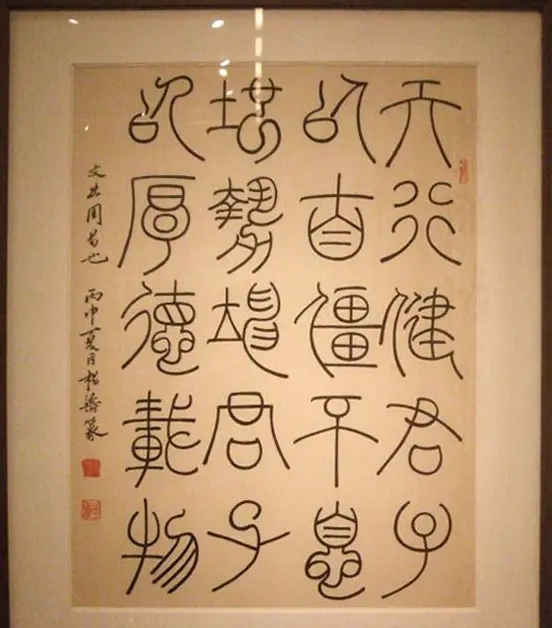 天行健君子
以自僵不息
地勢坤君子
以厚德載物
文出周易也 丙申夏月篆